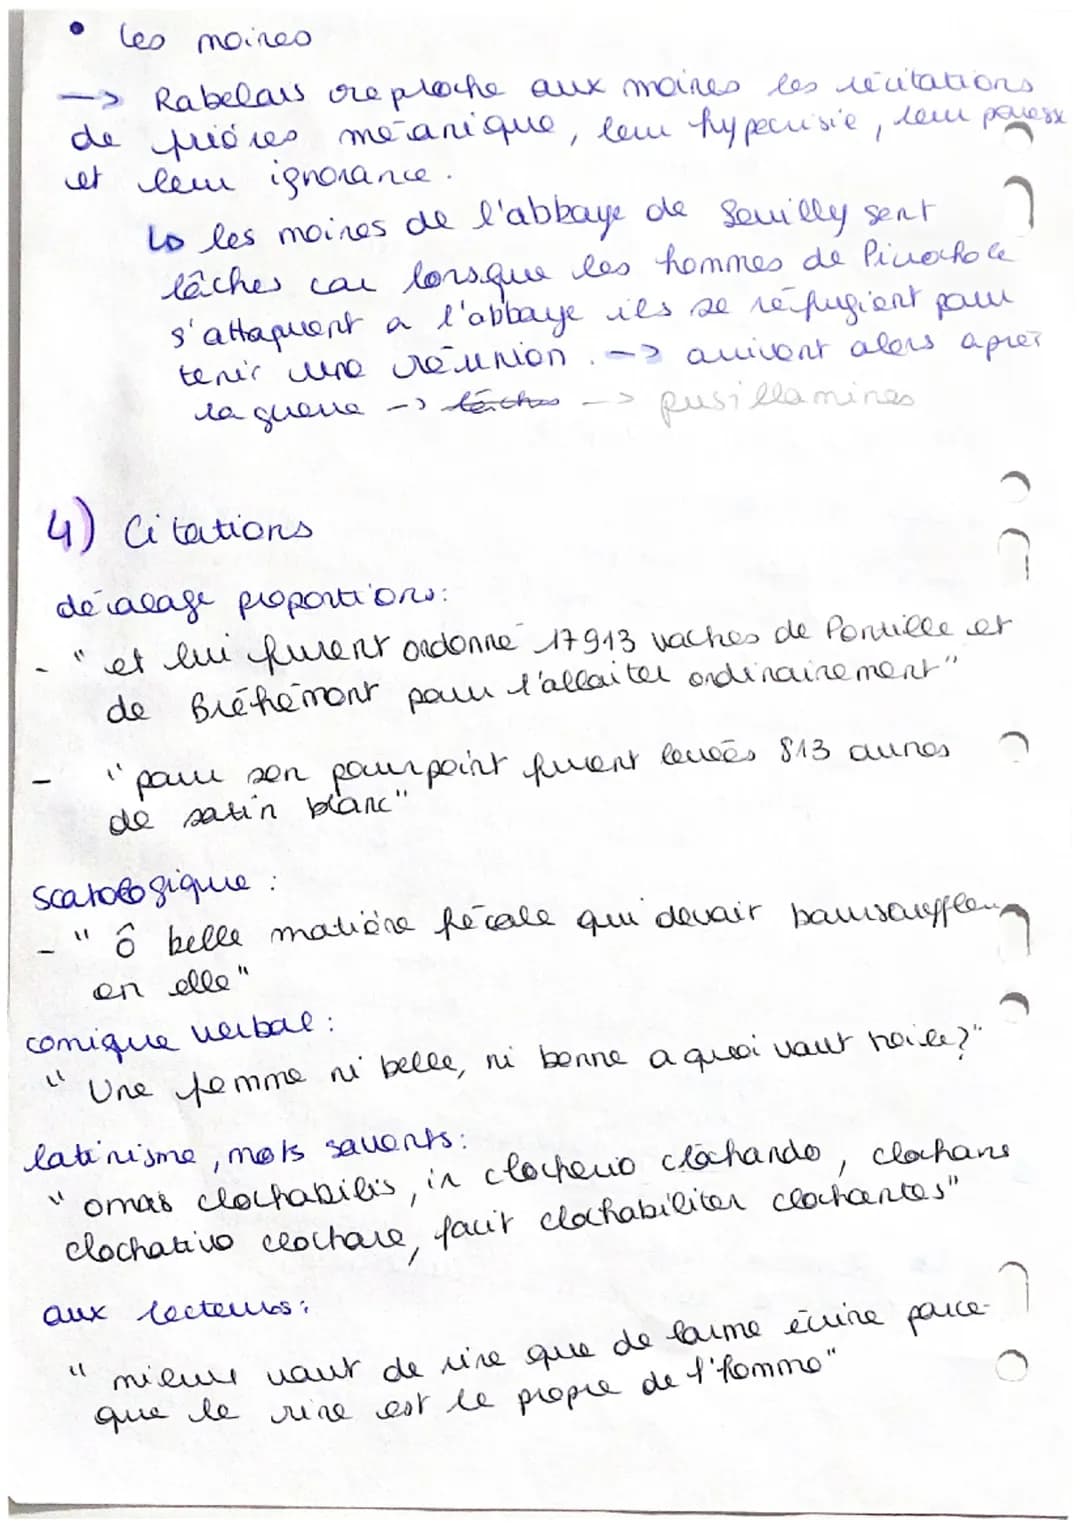 • les moines
--> Rabelais reproche aux moines les récitations
de prières mécanique, leur hypocrisie, leur paresse
et leur ignorance.
↳ les moines de l'abbaye de Seuilly sont
lâches car lorsque les hommes de Picrochole
s'attaquent a l'abbaye ils se réfugient pour
tenir une réunion. --> arrivent alors après
la guerre --> lâches --> pusillamines
4) Citations
décalage proportions:
- "et lui furent ordonné 17913 vaches de Pontille et
de Bréhémont pour l'allaiter ordinairement"
- "pour son pourpoint furent levées 813 aunes
de satin blanc"
scatologique :
- "ô belle matière fécale qui devait boursouffler
en elle"
comique verbal :
"Une femme ni belle, ni bonne a quoi vaut toile?"
latinisme, mots savants:
"omas clochabilis, in clocherio clochando, clochans
clochativo clochare, facit clochabiliter clochantes"
aux lecteurs:
"mieux vaut de rire que de larme écrire parce-
que le rire est le propre de l'homme"